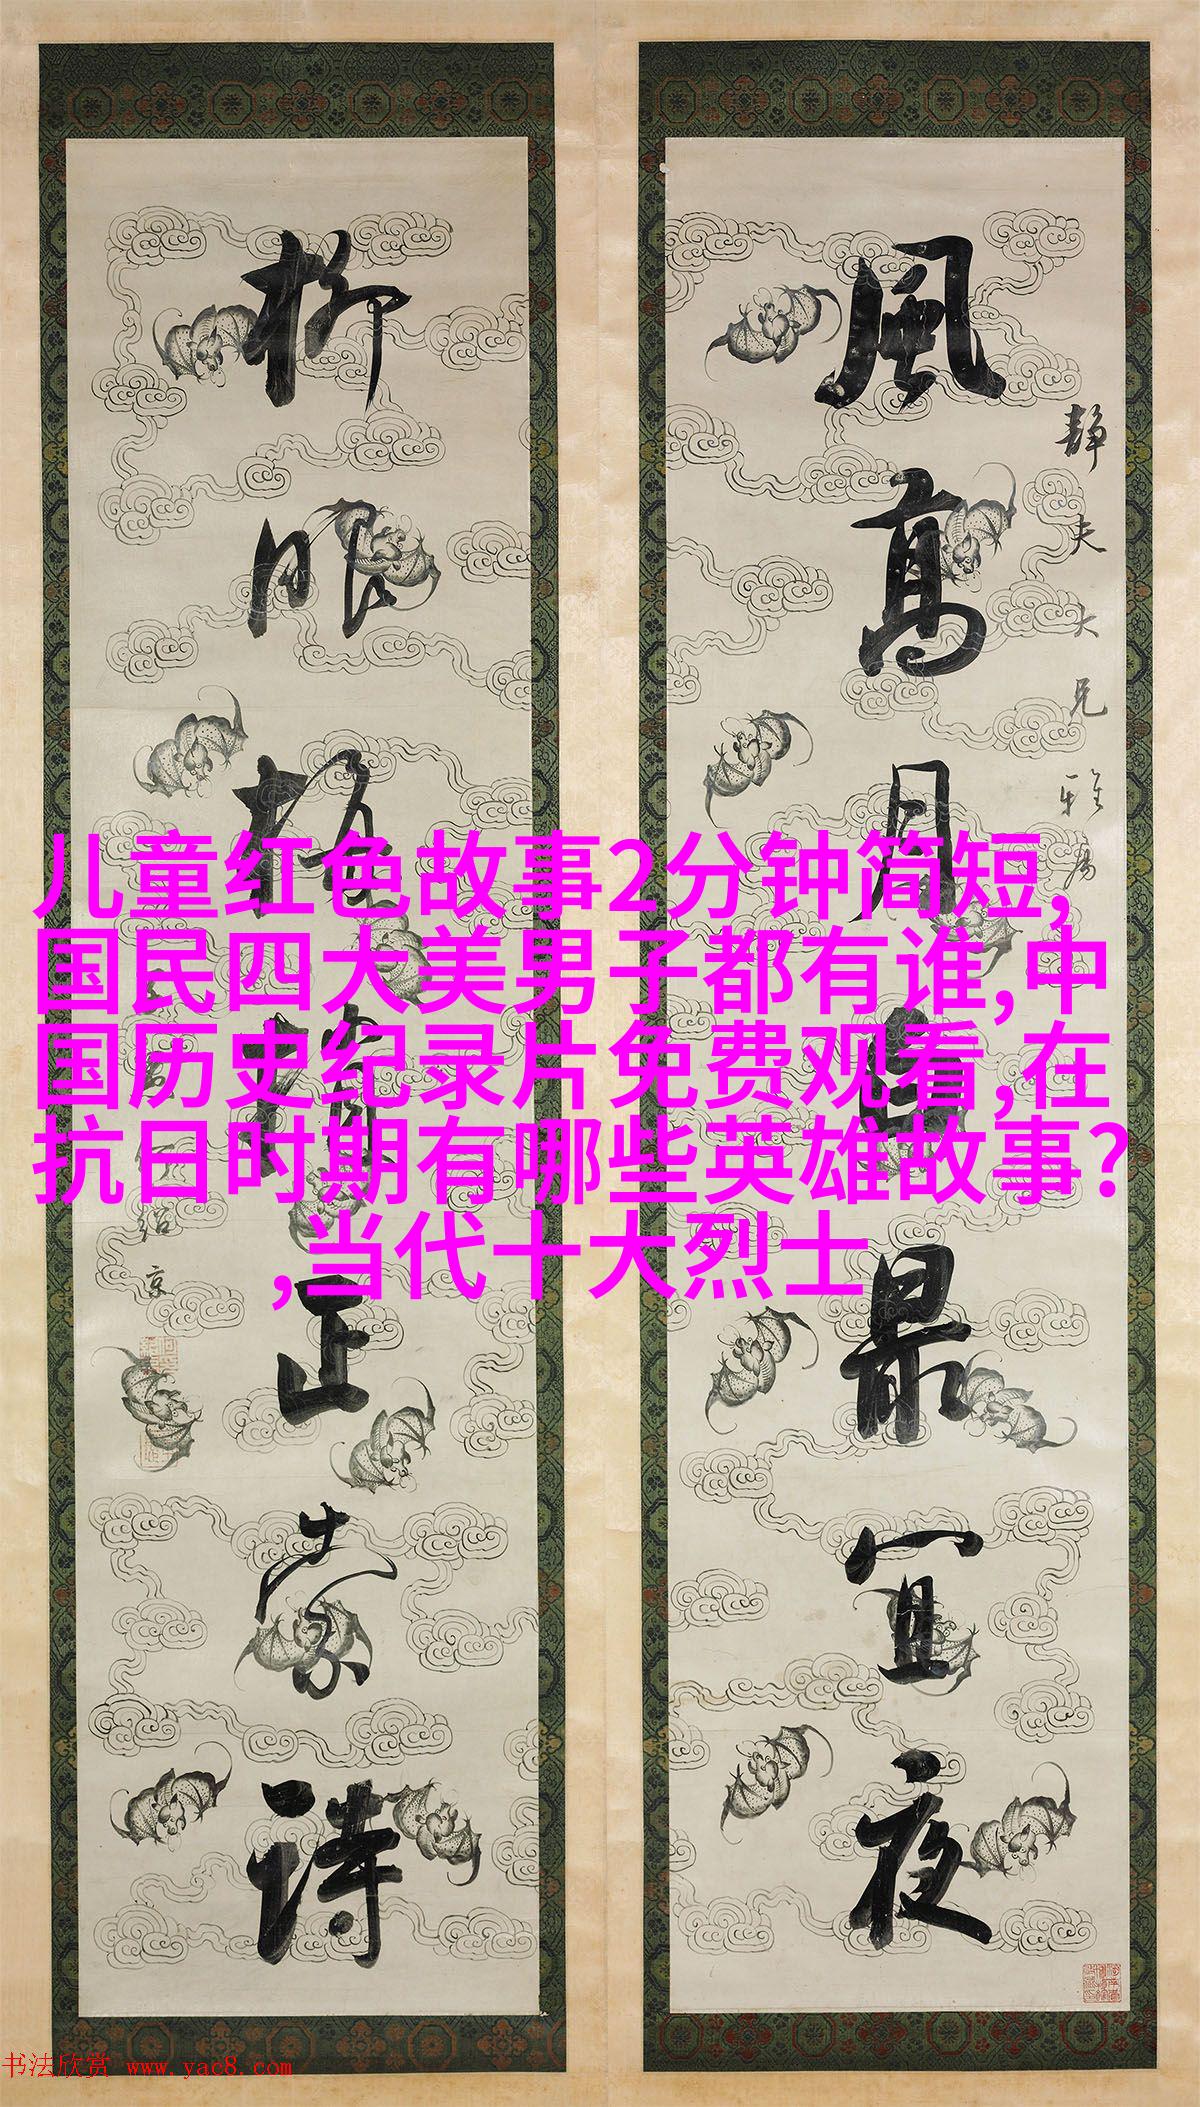 風高月□最宜夜
静夫大兄雅属
柳眼梅□正蒙詩
紹京
儿童红色故事2分钟简短,
国民四大美男子都有谁,中
国历史纪录片免费观看,在
抗日时期有哪些英雄故事?
,当代十大烈士
书法欣赏 www.yac8.com